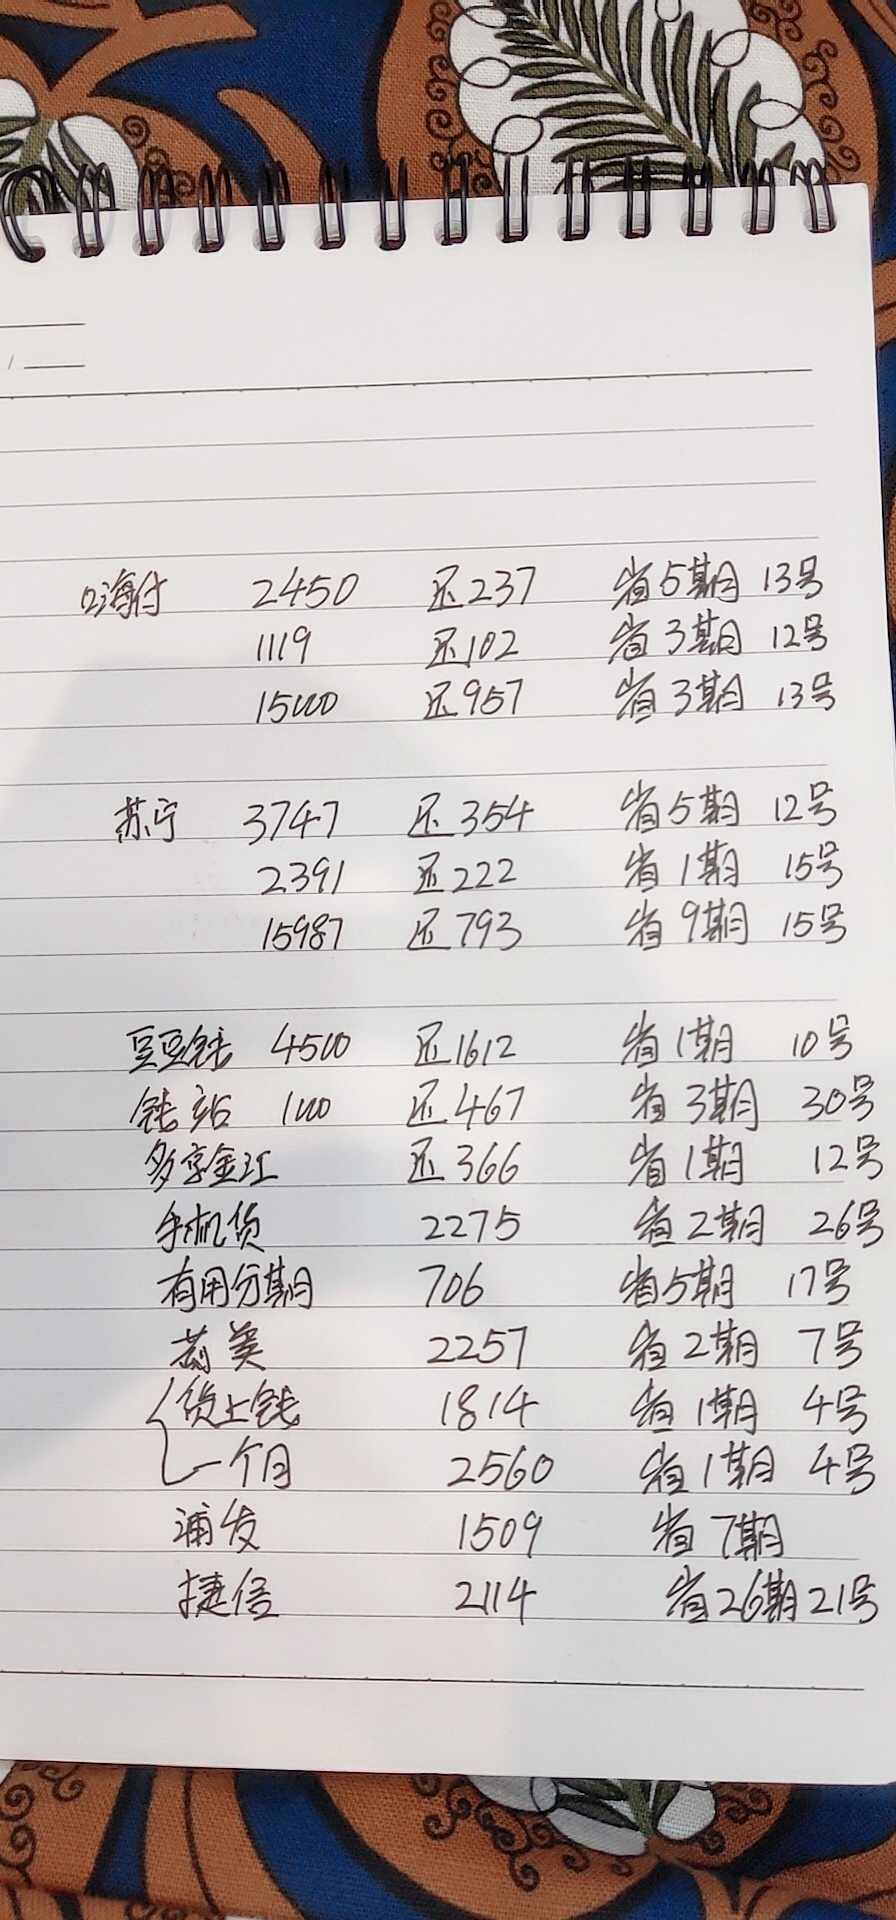 嗨付 2450 还237 省5期 13号
1119 还102 省3期 12号
15000 还957 省3期 13号
苏宁 3747 还354 省5期 12号
2391 还222 省1期 15号
15987 还793 省9期 15号
豆豆钱 4500 还1612 省1期 10号
钱站 1000 还467 省3期 30号
多享金江 还366 省1期 12号
手机贷 2275 省2期 26号
有用分期 706 省5期 17号
美 2257 省2期 7号
贷上钱 1814 省1期 4号
一个月 2560 省1期 4号
浦发 1509 省7期
捷信 2114 省26期 21号